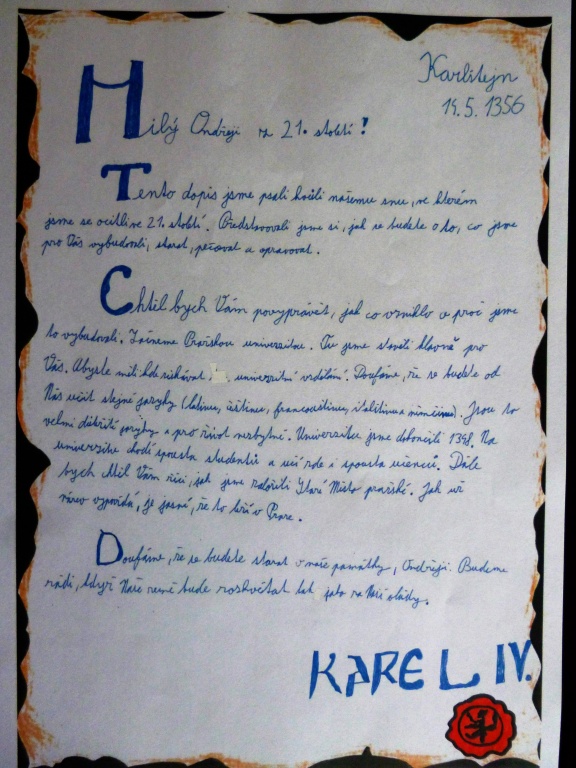 Karlštejn
14.5. 1356
Milý Ondřeji z 21. století!
Tento dopis jsme psali kvůli našemu snu, ve kterém
jsme se ocitli ve 21. století. Představovali jsme si, jak se budete o to, co jsme
pro Vás vybudovali, starat, pečovat a opravovat.
Chtěl bych Vám povyprávět, jak co vzniklo a proč jsme
to vybudovali. Začneme Pražskou univerzitou. Tu jsme stavěli hlavně pro
Vás. Abyste měli kde získávat univerzitní vzdělání. Doufáme, že se budete od
Nás učit stejné jazyky (latinu, češtinu, francouštinu, italštinu a němčinu). Jsou to
velmi důležité jazyky a pro život nezbytné. Univerzitu jsme dokončili 1348. Na
univerzitu chodí spousta studentů a učí zde i spousta učenců. Dále
bych chtěl Vám říci, jak jsme založili Staré Město pražské. Jak už
název vypovídá, je jasné, že to leží v Praze.
Doufáme, že se budete starat o naše památky, Ondřeji. Budeme
rádi, když Naše země bude rozkvétat tak jako za Naší vlády.
KAREL IV.